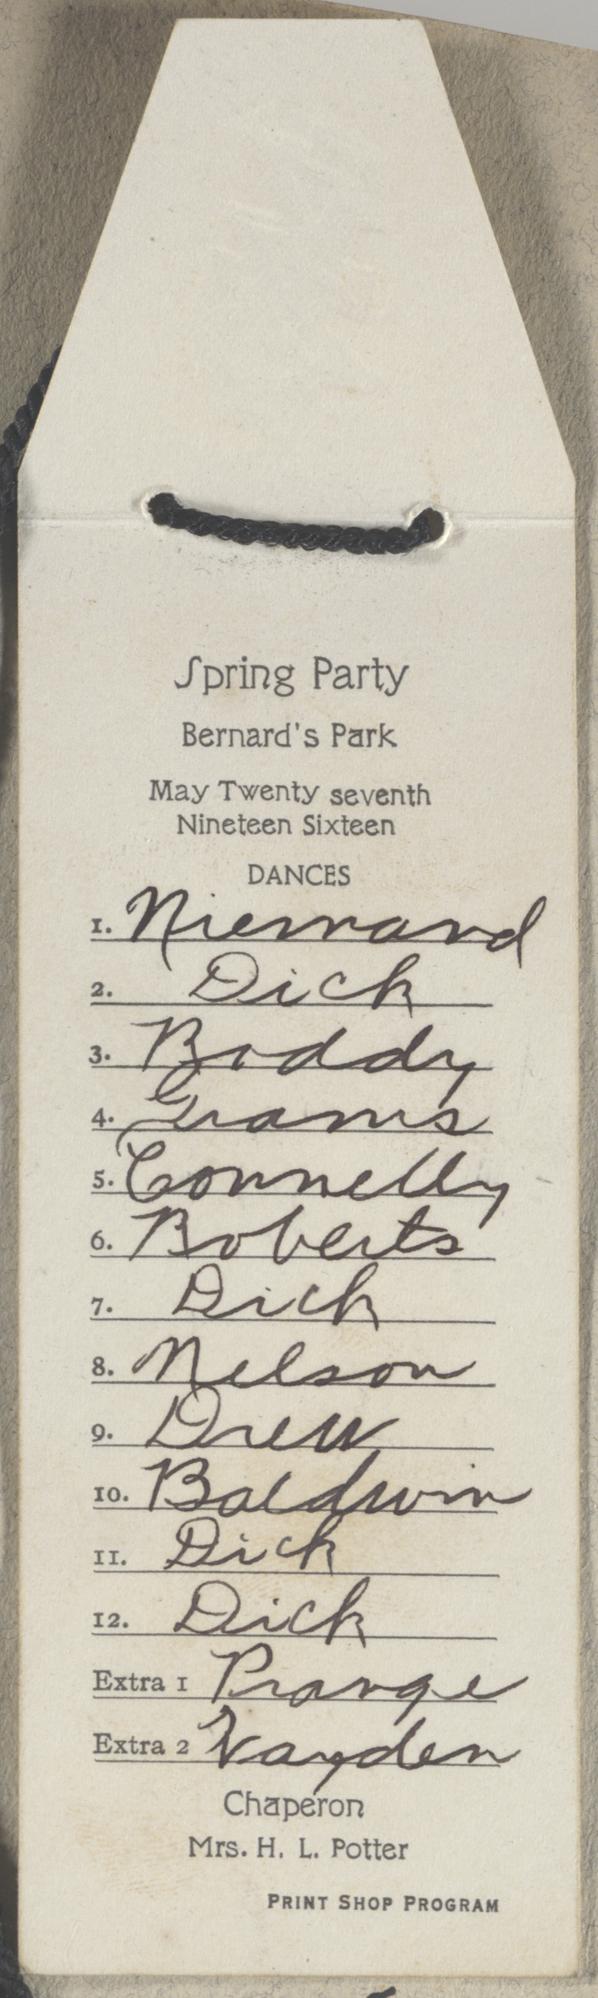 Spring Party
Bernard's Park
May Twenty seventh
Nineteen Sixteen
DANCES
1. Niemand
2. Dick
3. Boddy
4. Grams
5. Connelly
6. Roberts
7. Dick
8. Nelson
9. Drew
10. Baldwin
11. Dick
12. Dick
Extra 1 Prange
Extra 2 Vayden
Chaperon
Mrs. H. L. Potter
PRINT SHOP PROGRAM